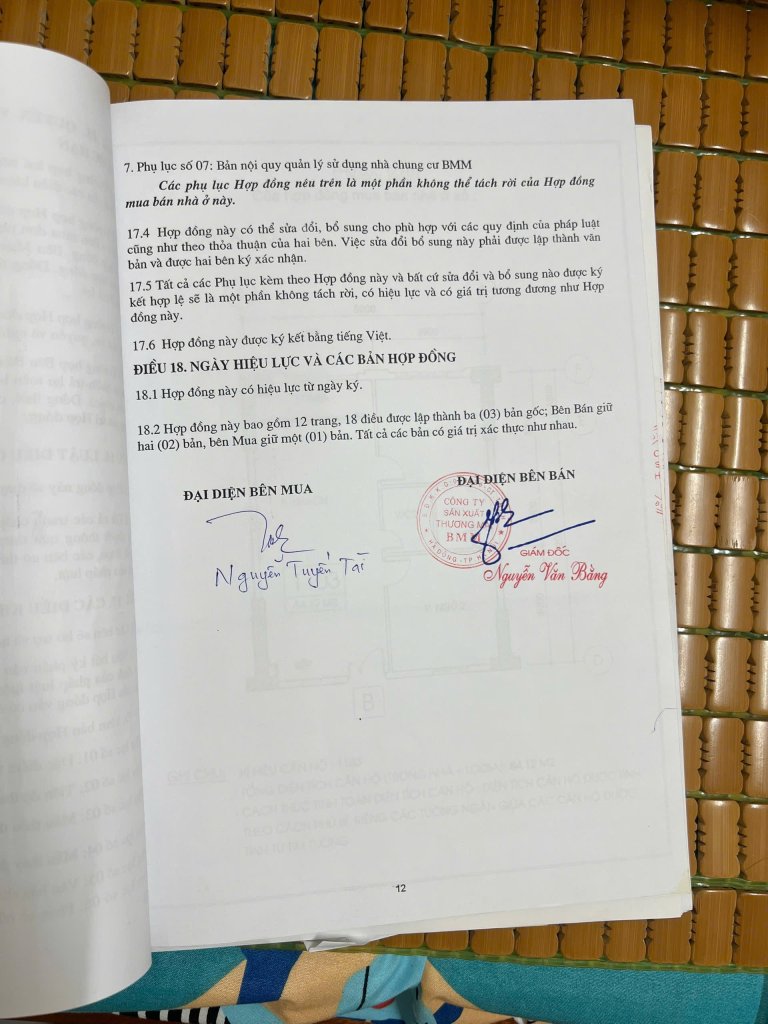 7. Phụ lục số 07: Bản nội quy quản lý sử dụng nhà chung cư BMM
Các phụ lục Hợp đồng nêu trên là một phần không thể tách rời của Hợp đồng
mua bán nhà ở này.
17.4 Hợp đồng này có thể sửa đổi, bổ sung cho phù hợp với các quy định của pháp luật
cũng như theo thỏa thuận của hai bên. Việc sửa đổi bổ sung này phải được lập thành văn
bản và được hai bên ký xác nhận.
17.5 Tất cả các Phụ lục kèm theo Hợp đồng này và bất cứ sửa đổi và bổ sung nào được ký
kết hợp lệ sẽ là một phần không tách rời, có hiệu lực và có giá trị tương đương như Hợp
đồng này.
17.6 Hợp đồng này được ký kết bằng tiếng Việt.
ĐIỀU 18. NGÀY HIỆU LỰC VÀ CÁC BẢN HỢP ĐỒNG
18.1 Hợp đồng này có hiệu lực từ ngày ký.
18.2 Hợp đồng này bao gồm 12 trang, 18 điều được lập thành ba (03) bản gốc; Bên Bán giữ
hai (02) bản, bên Mua giữ một (01) bản. Tất cả các bản có giá trị xác thực như nhau.
ĐẠI DIỆN BÊN MUA
ĐẠI DIỆN BÊN BÁN
CÔNG TY
SẢN XUẤT
THƯƠNG MẠI
BMM
HÀ ĐÔNG - TP. HÀ NỘI
GIÁM ĐỐC
Nguyễn Văn Bằng
Nguyễn Tuyến Tài
12